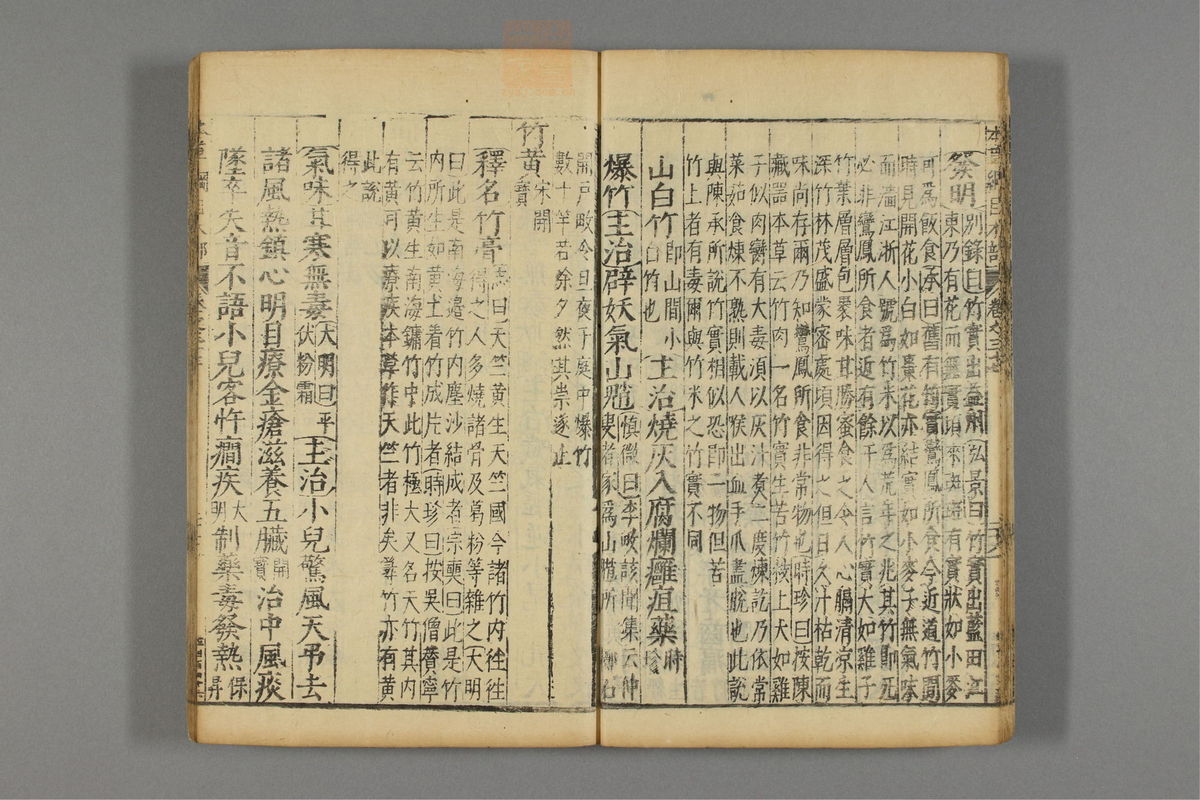 本草綱目木部 卷之三十七
發明別錄曰竹實出益州弘景曰竹實出藍田江
東乃有花而無實頃來斑斑有實狀如小麥
可爲飯食承曰舊有竹實鸞鳳所食今近道竹間
時見開花小白如棗花亦結實如小麥子無氣味
而濇江浙人號爲竹米以爲荒年之兆其竹即死
必非鸞鳳所食者近有餘干人言竹實大如雞子
竹葉層層包裹味甘勝蜜食之令人心膈清涼生
深竹林茂盛蒙密處頃因得之但日久汁枯乾而
味尚存爾乃知鸞鳳所食非常物也時珍曰按陳
藏器本草云竹肉一名竹實生苦竹枝上大如雞
子似肉臠有大毒須以灰汁煮二度煉訖乃依常
菜茹食煉不熟則戟人喉出血手爪盡脫也此說
與陳承所說竹實相似恐即一物但苦
竹上者有毒爾與竹米之竹實不同
山白竹即山間小白竹也主治燒灰入腐爛癰疽藥時珍
爆竹主治辟妖氣山魈慎微曰李畋該聞集云仲叟者家爲山魈所
開戶畋令旦夜于庭中爆竹
數十竿若除夕然其祟遂止
竹黃宋開寶
釋名竹膏志曰天竺黃生天竺國今諸竹內往往
得之人多燒諸骨及葛粉等雜之大明
曰此是南海邊竹內塵沙結成者宗奭曰此是竹
內所生如黃土着竹成片者時珍曰按吳僧贊寧
云竹黃生南海鏞竹中此竹極大又名天竹其內
有黃可以療疾本草作天竺者非矣𥴠竹亦有黃
此說
得之
氣味甘寒無毒大明曰平伏粉霜主治小兒驚風天弔去
諸風熱鎮心明目療金瘡滋養五臟開寶治中風痰
墜卒失音不語小兒客忤癇疾大明制藥毒發熱保昇